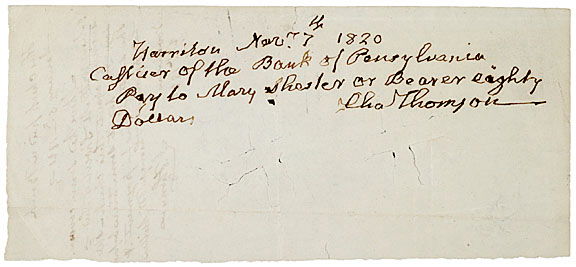 Harriton Novr. 7th 1820
Cashier of the Bank of Pensylvania
Pay to Mary Shester or Bearer eighty
Dollars Chas Thomson